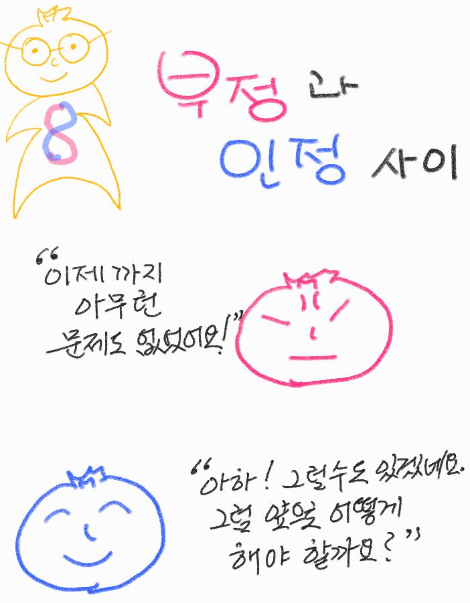 8
부정과
인정 사이
"이제까지
아무런
문제도 없었어요!"
"아하! 그럴수도 있겠네요.
그럼 앞으론 어떻게
해야 할까요?"